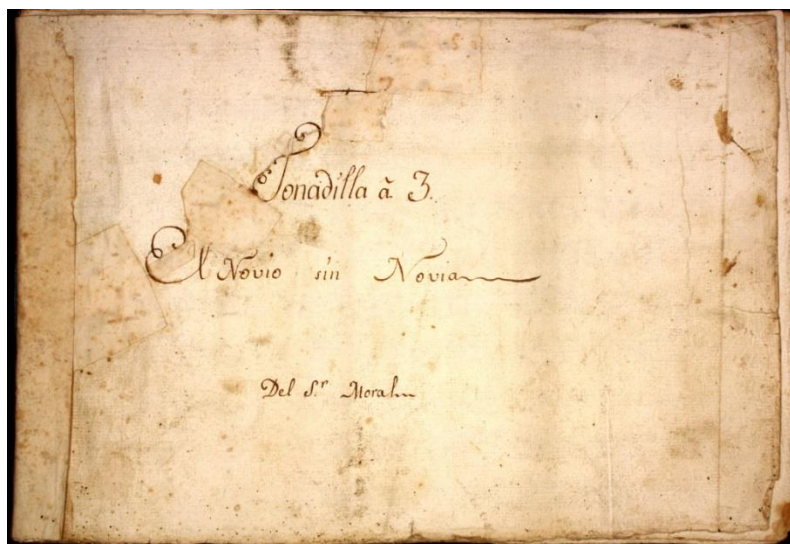 Tonadilla à 3.
El Novio sin Novia
Del S.r Moral